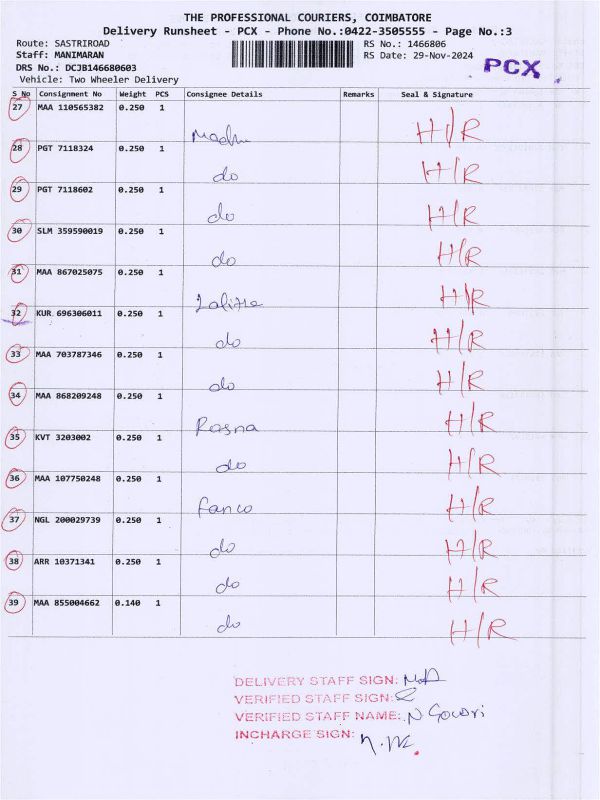 THE PROFESSIONAL COURIERS, COIMBATORE
Delivery Runsheet - PCX - Phone No.:0422-3505555 - Page No.:3
Route: SASTRIROAD RS No.: 1466806
Staff: MANIMARAN RS Date: 29-Nov-2024
DRS No.: DCJB146680603 PCX
Vehicle: Two Wheeler Delivery
S No Consignment No Weight PCS Consignee Details Remarks Seal & Signature
27 MAA 110565382 0.250 1 Madhu H/R
28 PGT 7118324 0.250 1 do H/R
29 PGT 7118602 0.250 1 do H/R
30 SLM 359590019 0.250 1 do H/R
31 MAA 867025075 0.250 1 H/R
32 KUR 696306011 0.250 1 do H/R
33 MAA 703787346 0.250 1 do H/R
34 MAA 868209248 0.250 1 Rasna H/R
35 KVT 3203002 0.250 1 do H/R
36 MAA 107750248 0.250 1 fanco H/R
37 NGL 200029739 0.250 1 do H/R
38 ARR 10371341 0.250 1 do H/R
39 MAA 855004662 0.140 1 do H/R
DELIVERY STAFF SIGN:
VERIFIED STAFF SIGN:
VERIFIED STAFF NAME: N Gowri
INCHARGE SIGN: